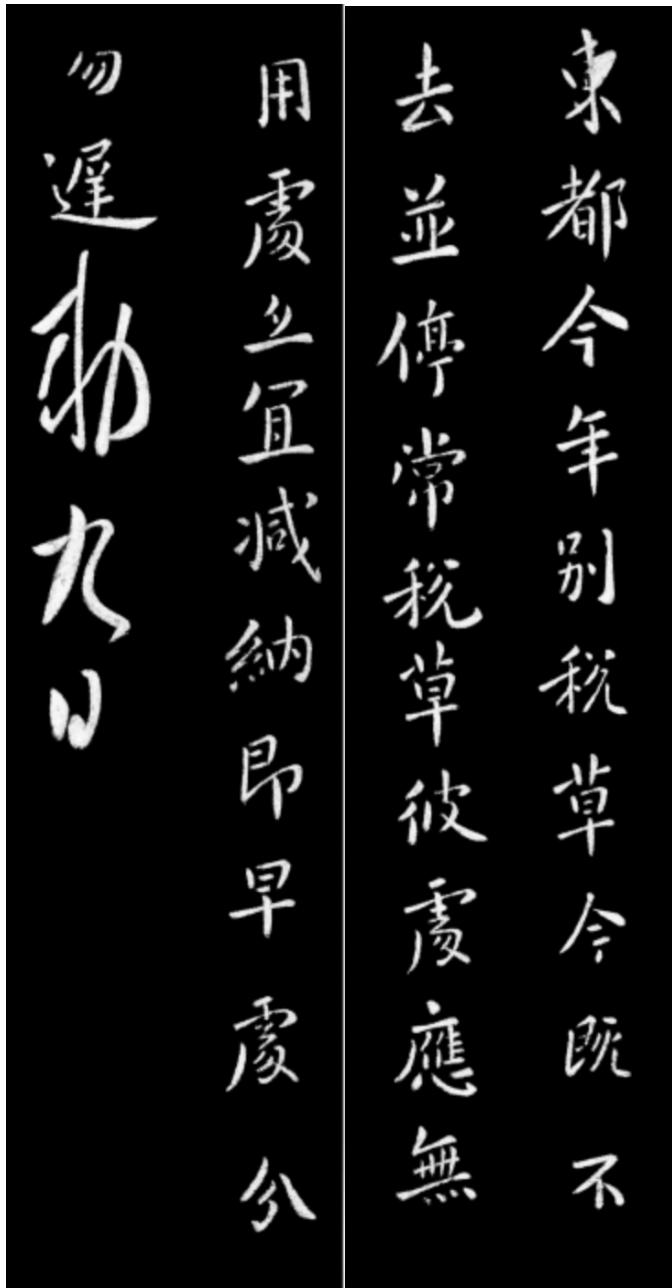 東都今年別稅草今既不
去並停常稅草彼處應無
用處亦宜減納即早處分
勿遲勅九日